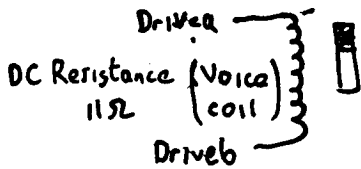 Drivea
DC Resistance (Voice
11Ω coil)
Driveb